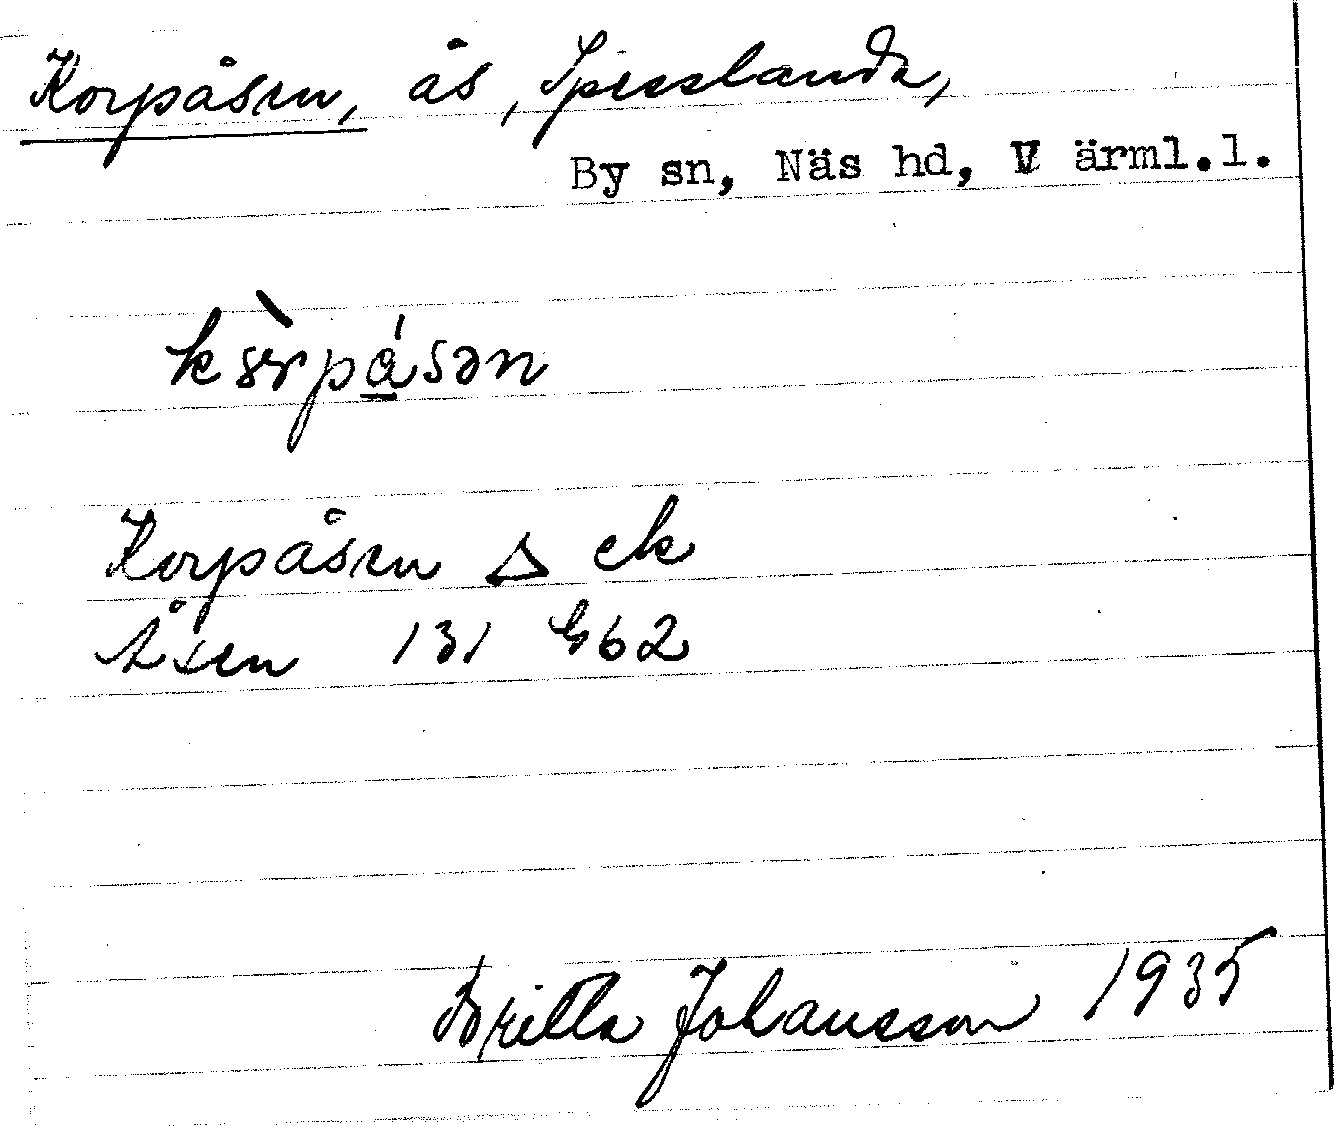 Korpåsen, ås, Spesslanda,
By sn, Näs hd, Värml.l.
körpåsən
Korpåsen △ ek
Åsen 131 G62
Britta Johansson 1935